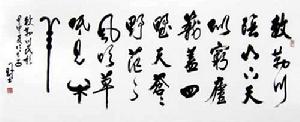 敕勒川
陰山下天
似穹廬
籠蓋四
野天蒼蒼
野茫茫
風吹草
低見牛
羊
敕勒川民歌